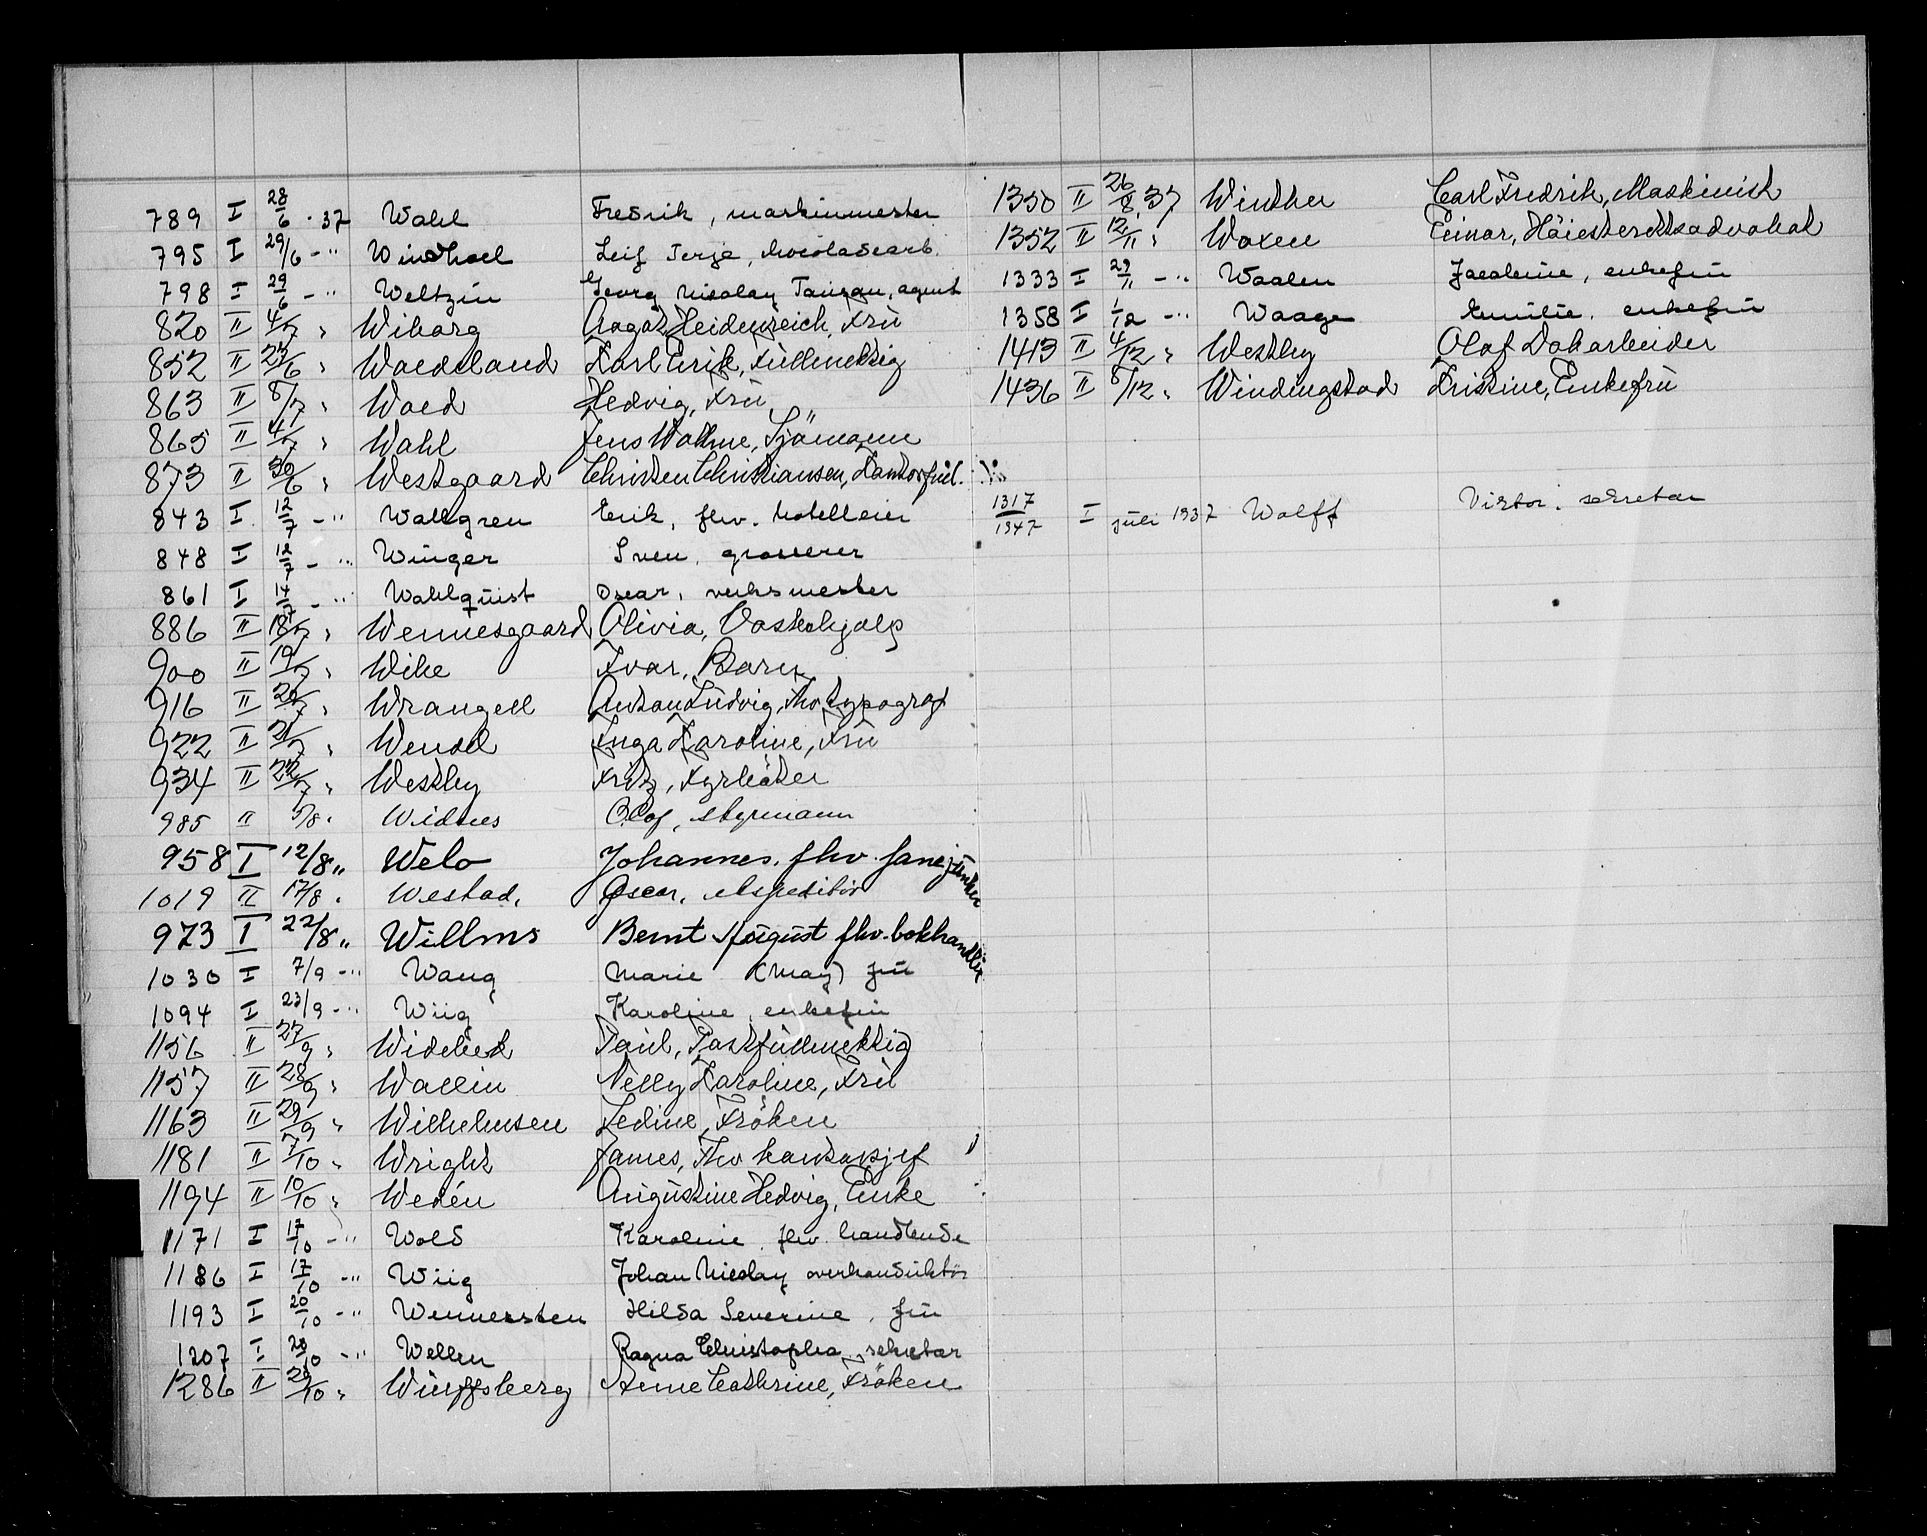 789 I 28/6 - 37 Wahl Fredrik, maskinmester
795 I 29/6 - " Windthoel Leif Terje,
798 I 29/6 - " Weltzin Georg Nicolay, agent
820 II 4/7 " Wiborg Aagot Heidenreich, Frü
852 II 27/6 " Waedeland Karl Erik, Füllmektig
863 II 8/7 " Waed Hedvig, Frü
865 II 4/7 " Wahl Jens Wollme, Sjömann
873 II 30/6 " Westgaard Christen Christiansen, Kontorfül.
843 I 12/7 - " Wallgren Erik, fhv. hotelleier
848 I 12/7 - " Winger Sven, grosserer
861 I 14/7 - " Wahlquist Oscar, verksmester
886 II 18/7 " Wennesgaard Olivia, Vaskehjælp
900 II 19/7 " Wike Ivar, Barn
916 II 20/7 " Wrangell Anton Ludvig, fhv typograf
922 II 21/7 " Wendel Inga Karoline, Frü
934 II 22/7 " Westby Fritz, Fyrböter
985 II 5/8 " Widnes Olof, styrmann
958 I 12/8 " Welo Johannes, fhv. fanejunker
1019 II 17/8 " Westad, Oscar, ekspeditör
973 I 22/8 " Willms Bernt August fhv. bokhandler
1030 I 7/9 - " Wang Marie (May) frü
1094 I 23/9 - " Wiig Karoline, enkefrü
1156 II 27/9 " Wideked Paul, Postfülmektig
1157 II 28/9 " Wallin Nelly Karoline, Frü
1163 II 29/9 " Wilhelmsen Ledine, Fröken
1181 II 7/10 " Wright James, Fhv kontorsjef
1194 II 10/10 " Wedén Augustine Hedvig, Enke
1171 I 17/10 - " Wold Karoline, fhv. handlende
1186 I 17/10 - " Wiig Johan Nicolay overkonduktör
1193 I 20/10 - " Wennersten Hilda Severine, frü
1207 I 20/10 - " Wellen Ragna Christopha, sekretær
1286 II 29/10 " Wüpfsberg Anne Cathrine, Fröken
1350 II 26/8 37 Winther Carl Fredrik, Maskinist
1352 II 12/11 " Woxen Einar, Höiesterettsadvokat
1333 I 29/11 - " Waalen Jacobine, enkefrü
1358 I 1/12 - " Waage Emilie, enkefrü
1413 II 4/12 " Westby Olaf Dokarbeider
1436 II 8/12 " Windingstad Kristine, Enkefrü
1317/1347 I juli 1937 Wolff Viktor, sekretær